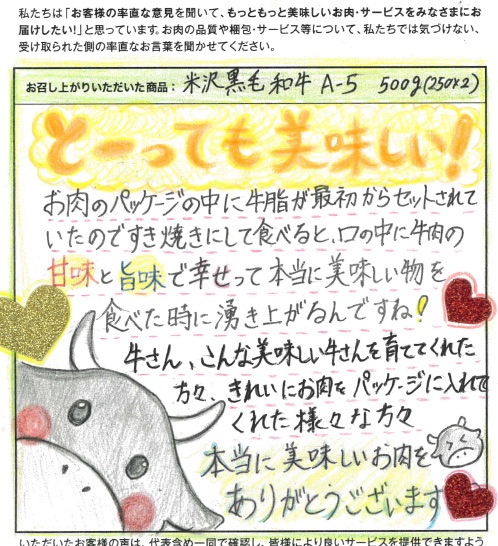 私たちは「お客様の率直な意見を聞いて、もっともっと美味しいお肉・サービスをみなさまにお
届けしたい!」と思っています。お肉の品質や梱包・サービス等について、私たちでは気づけない、
受け取られた側の率直なお言葉を聞かせてください。
お召し上がりいただいた商品: 米沢黒毛和牛 A-5 500g(250×2)
とーっても美味しい!
お肉のパッケージの中に牛脂が最初からセットされて
いたのですき焼きにして食べると、口の中に牛肉の
甘味と旨味で幸せって本当に美味しい物を
食べた時に湧き上がるんですね!
牛さん、こんな美味しい牛さんを育ててくれた
方々、きれいにお肉をパッケージに入れて
くれた様々な方々
本当に美味しいお肉を
ありがとうございます
いただいたお客様の声は、代表含め一同で確認し、皆様により良いサービスを提供できますよう